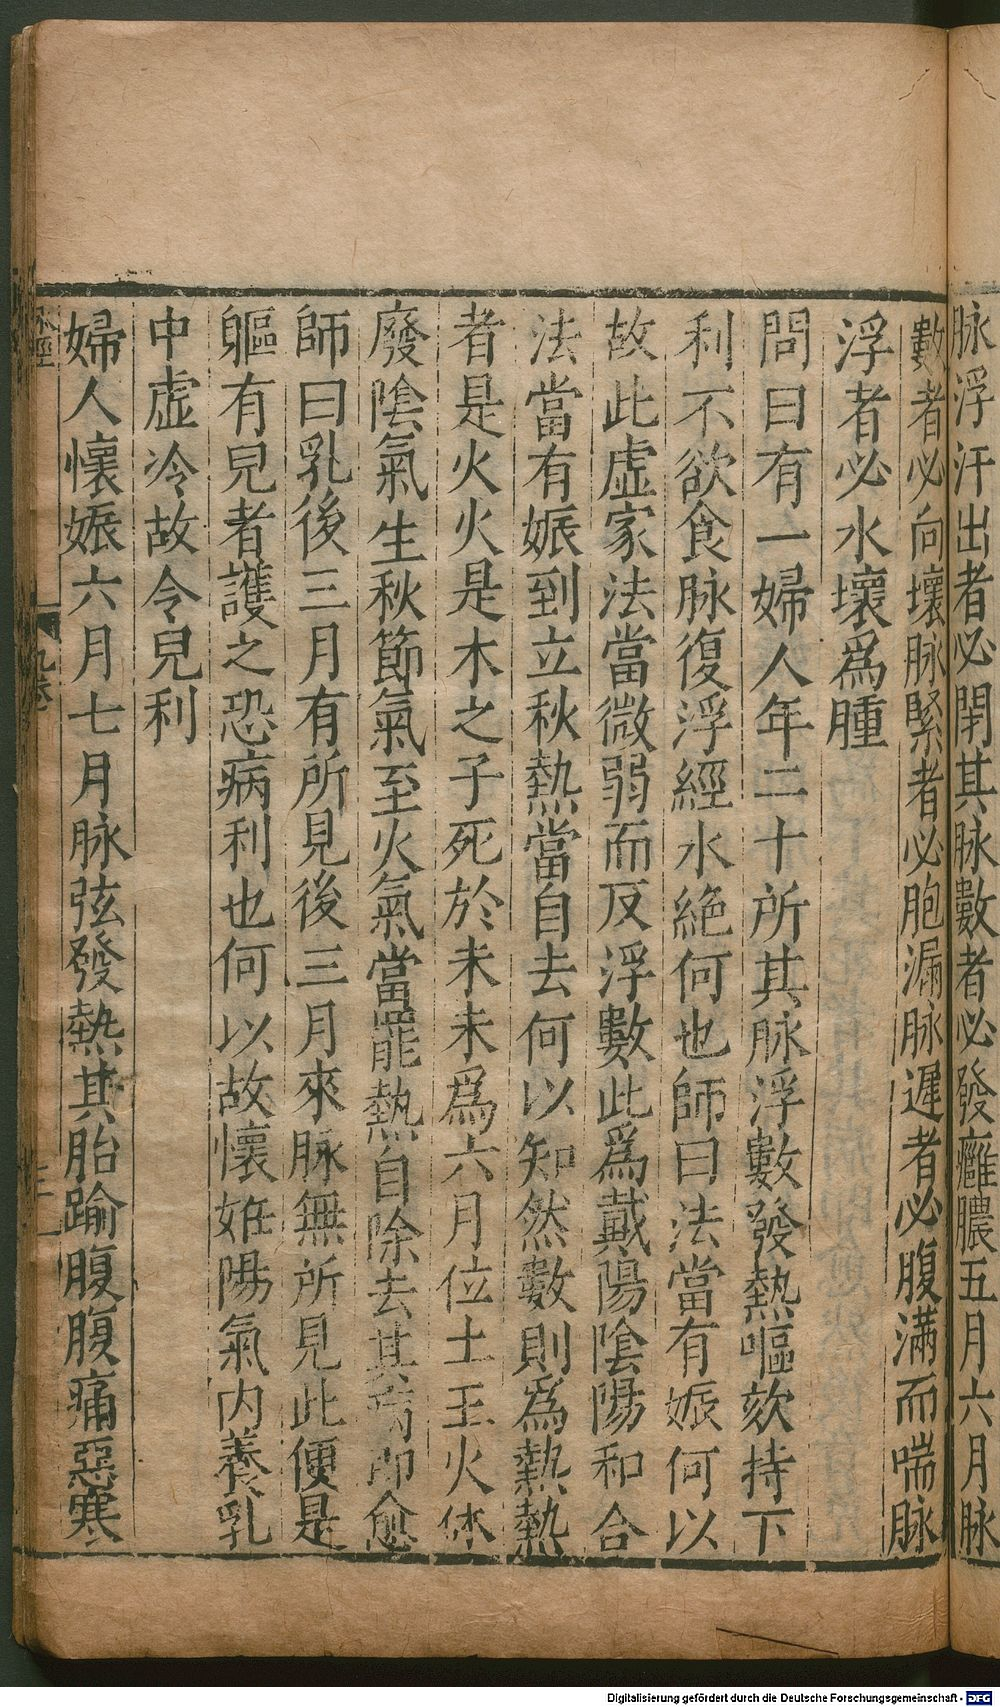 脉浮汗出者必閉其脉數者必發癰膿五月六月脉
數者必向壞脉緊者必胞漏脉遲者必腹满而喘脉
浮者必水壞為腫
問曰有一婦人年二十所其脉浮數發熱嘔欬持下
利不欲食脉復浮經水絶何也師曰法當有娠何以
故此虚家法當微弱而反浮數此為戴陽隂陽和合
法當有娠到立秋熱當自去何以知然數則為熱熱
者是火火是木之子死於未未為六月位土王火休
廢隂氣生秋節氣至火氣當罷熱自除去其病即愈
師曰乳後三月有所見後三月來脉無所見此便是
軀有兒者護之恐病利也何以故懷妊陽氣内養乳
中虚冷故令兒利
婦人懷娠六月七月脉弦發熱其胎踰腹腹痛惡寒
脉經 九卷
Digitalisierung gefördert durch die Deutsche Forschungsgemeinschaft - DFG